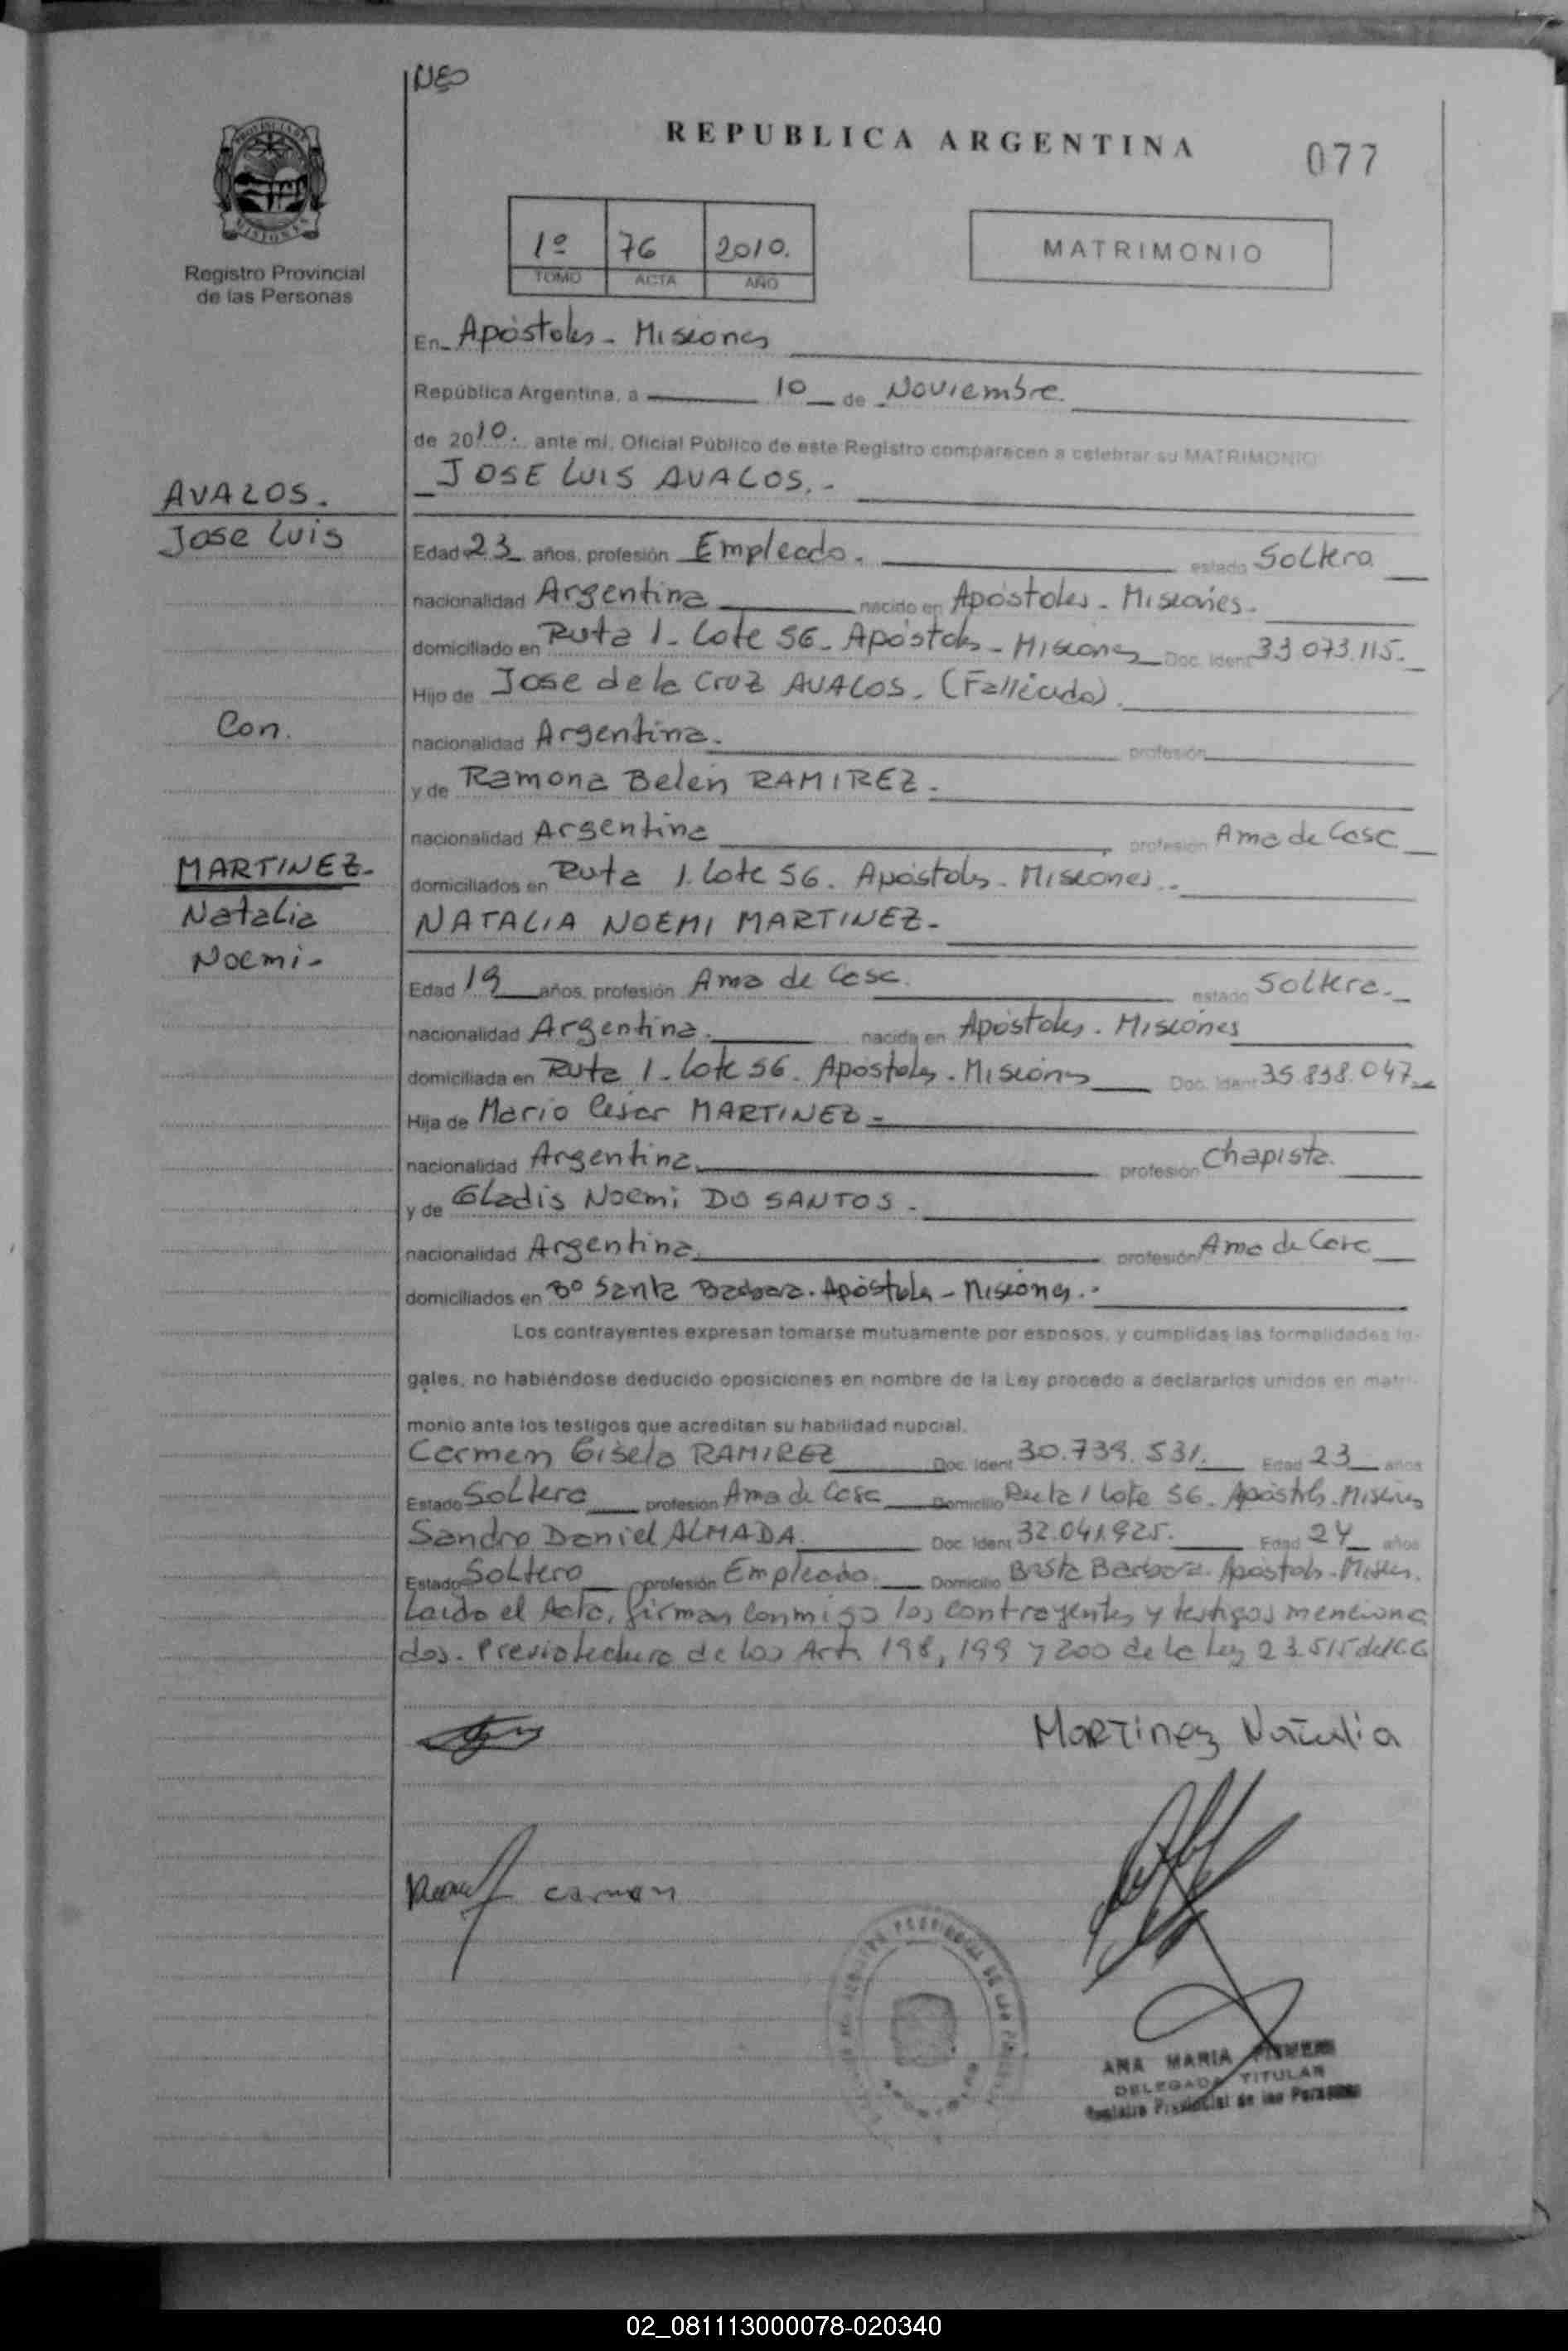 REPUBLICA ARGENTINA
077
PROVINCIA DE
MISIONES
Registro Provincial
de las Personas
1º 76 2010.
TOMO ACTA AÑO
MATRIMONIO
En Apóstoles - Misiones
República Argentina, a 10 de Noviembre.
de 2010. ante mi, Oficial Público de este Registro comparecen a celebrar su MATRIMONIO
JOSE LUIS AVALOS. -
AVALOS.
Jose Luis
Edad 23 años, profesión Empleado. estado Soltero.
nacionalidad Argentina nacido en Apóstoles - Misiones.
domiciliado en Ruta 1 - Lote 56 - Apóstoles - Misiones Doc. Ident 33 073.115.
Hijo de Jose de la Cruz AVALOS. (Fallecido).
Con.
nacionalidad Argentina. profesión
y de Ramona Belén RAMIREZ -
nacionalidad Argentina profesión Ama de Casa
MARTINEZ -
Natalia
Noemi -
domiciliados en Ruta 1. Lote 56. Apóstoles - Misiones.
NATALIA NOEMI MARTINEZ -
Edad 19 años, profesión Ama de Casa. estado Soltera.
nacionalidad Argentina. nacida en Apóstoles. Misiones
domiciliada en Ruta 1 - Lote 56. Apóstoles. Misiones Doc. Ident 35.898.047
Hija de Mario Cesar MARTINEZ -
nacionalidad Argentina. profesión Chapista.
y de Gladis Noemi DO SANTOS -
nacionalidad Argentina. profesión Ama de Casa
domiciliados en Bº Santa Barbara. Apóstoles - Misiones. -
Los contrayentes expresan tomarse mutuamente por esposos, y cumplidas las formalidades le-
gales, no habiéndose deducido oposiciones en nombre de la Ley procedo a declararlos unidos en matri-
monio ante los testigos que acreditan su habilidad nupcial.
Carmen Gisela RAMIREZ Doc. Ident 30.739.531. Edad 23 años
Estado Soltera profesión Ama de Casa Domicilio Ruta 1 Lote 56. Apóstoles. Misiones
Sandro Daniel ALMADA. Doc. Ident 32.041.925. Edad 24 años
Estado Soltero profesión Empleado. Domicilio Bº Sta Barbara. Apóstoles - Misiones.
Leido el Acta, firman conmigo los contrayentes y testigos menciona
dos. Previo lectura de los Arts 198, 199 y 200 de la Ley 23.515 del C.C
Martinez Natalia
Carmen
ANA MARIA
DELEGADA TITULAR
Registro Provincial de las Personas
02_081113000078-020340